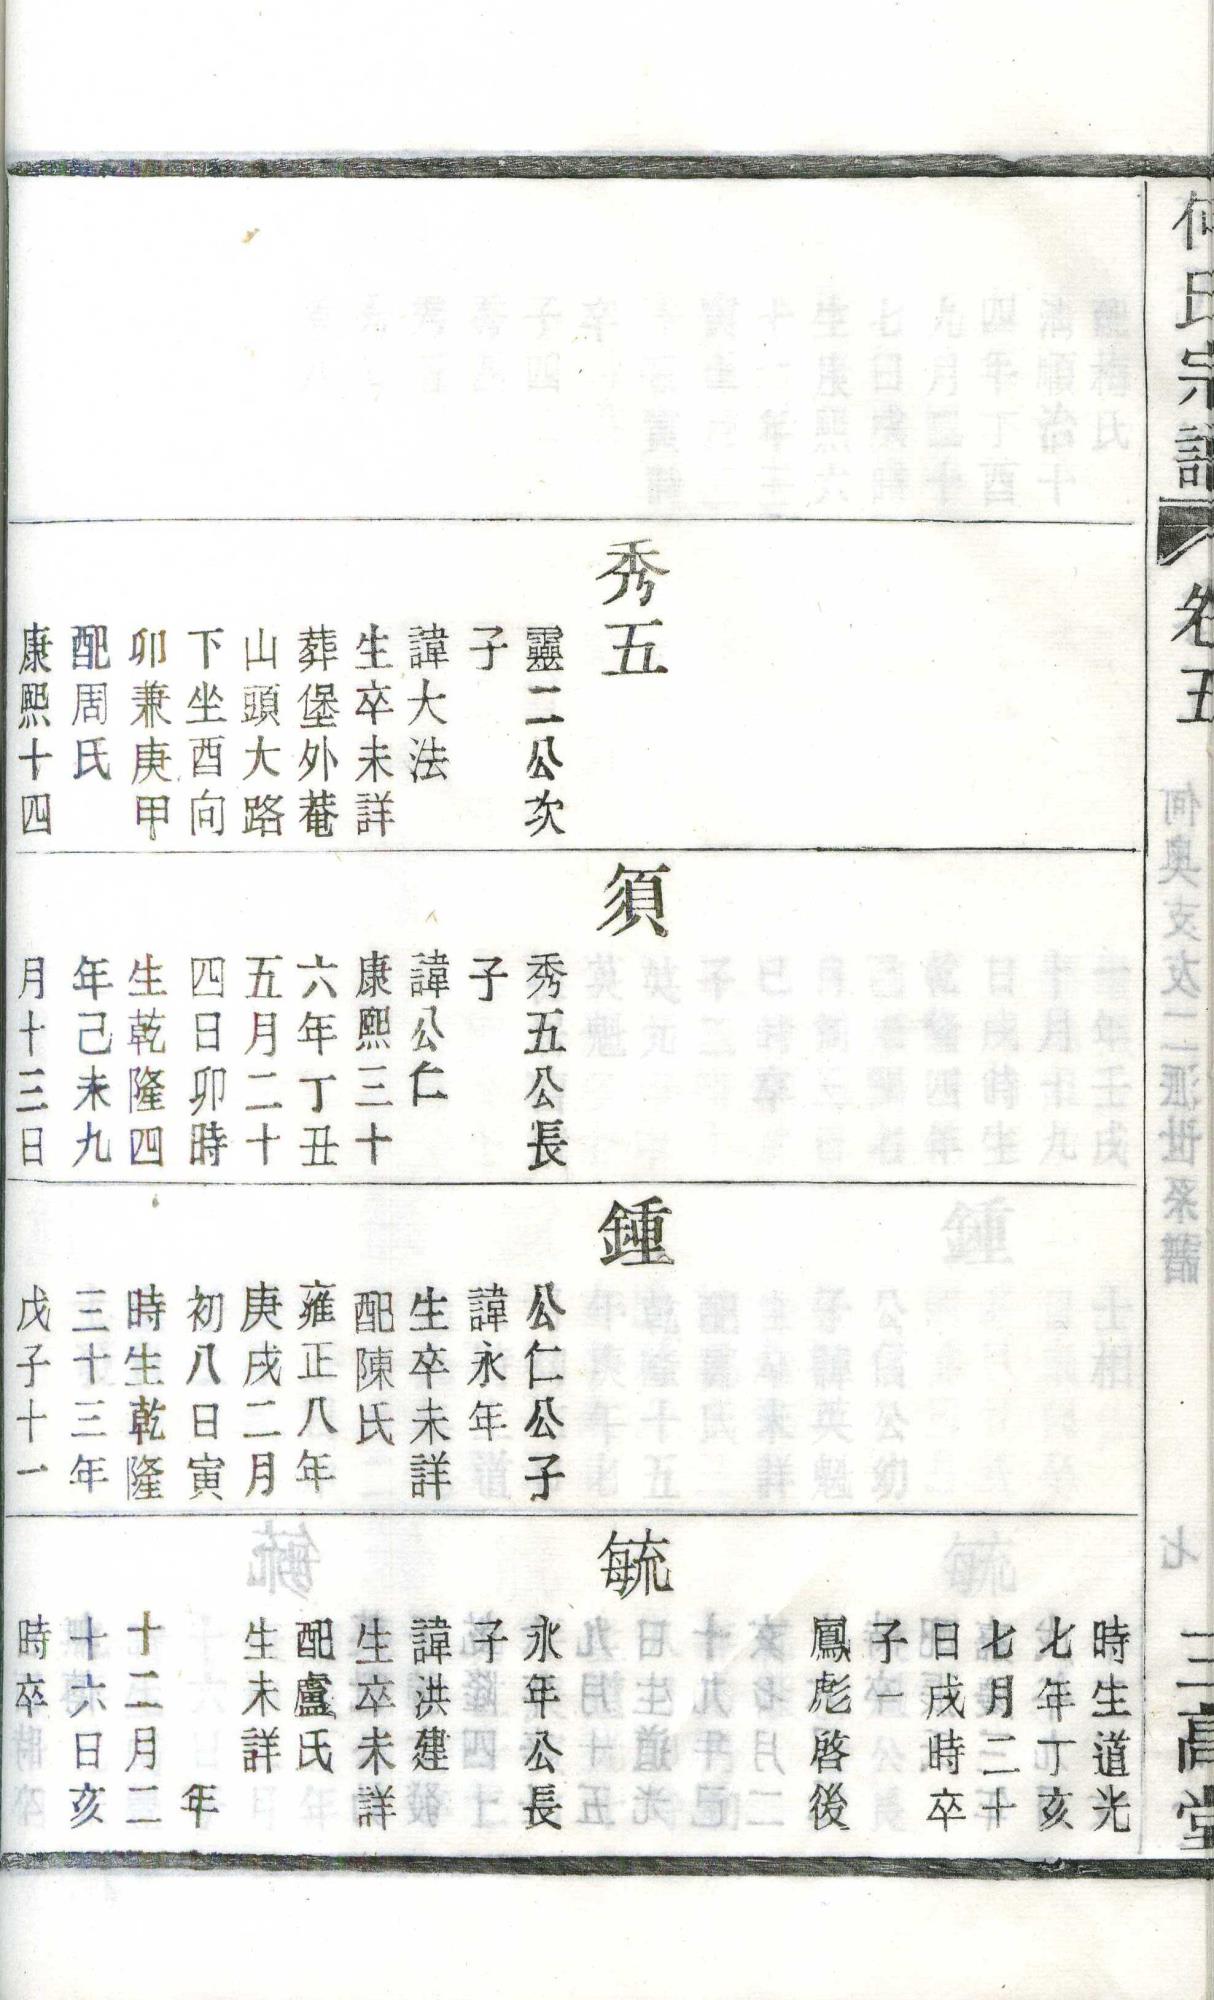 何氏宗譜
卷五
三高堂
秀五
靈二公次
子
諱大法
生卒未詳
葬堡外菴
山頭大路
下坐酉向
卯兼庚甲
配周氏
康熙十四
須
秀五公長
子
諱公仁
康熙三十
六年丁丑
五月二十
四日卯時
生乾隆四
年己未九
月十三日
鍾
公仁公子
諱永年
生卒未詳
配陳氏
雍正八年
庚戌二月
初八日寅
時生乾隆
三十三年
戊子十一
時生道光
七年丁亥
七月二十
日戌時卒
子一
鳳彪啓後
毓
永年公長
子
諱洪建
生卒未詳
配盧氏
生未詳
年
十二月二
十六日亥
時卒